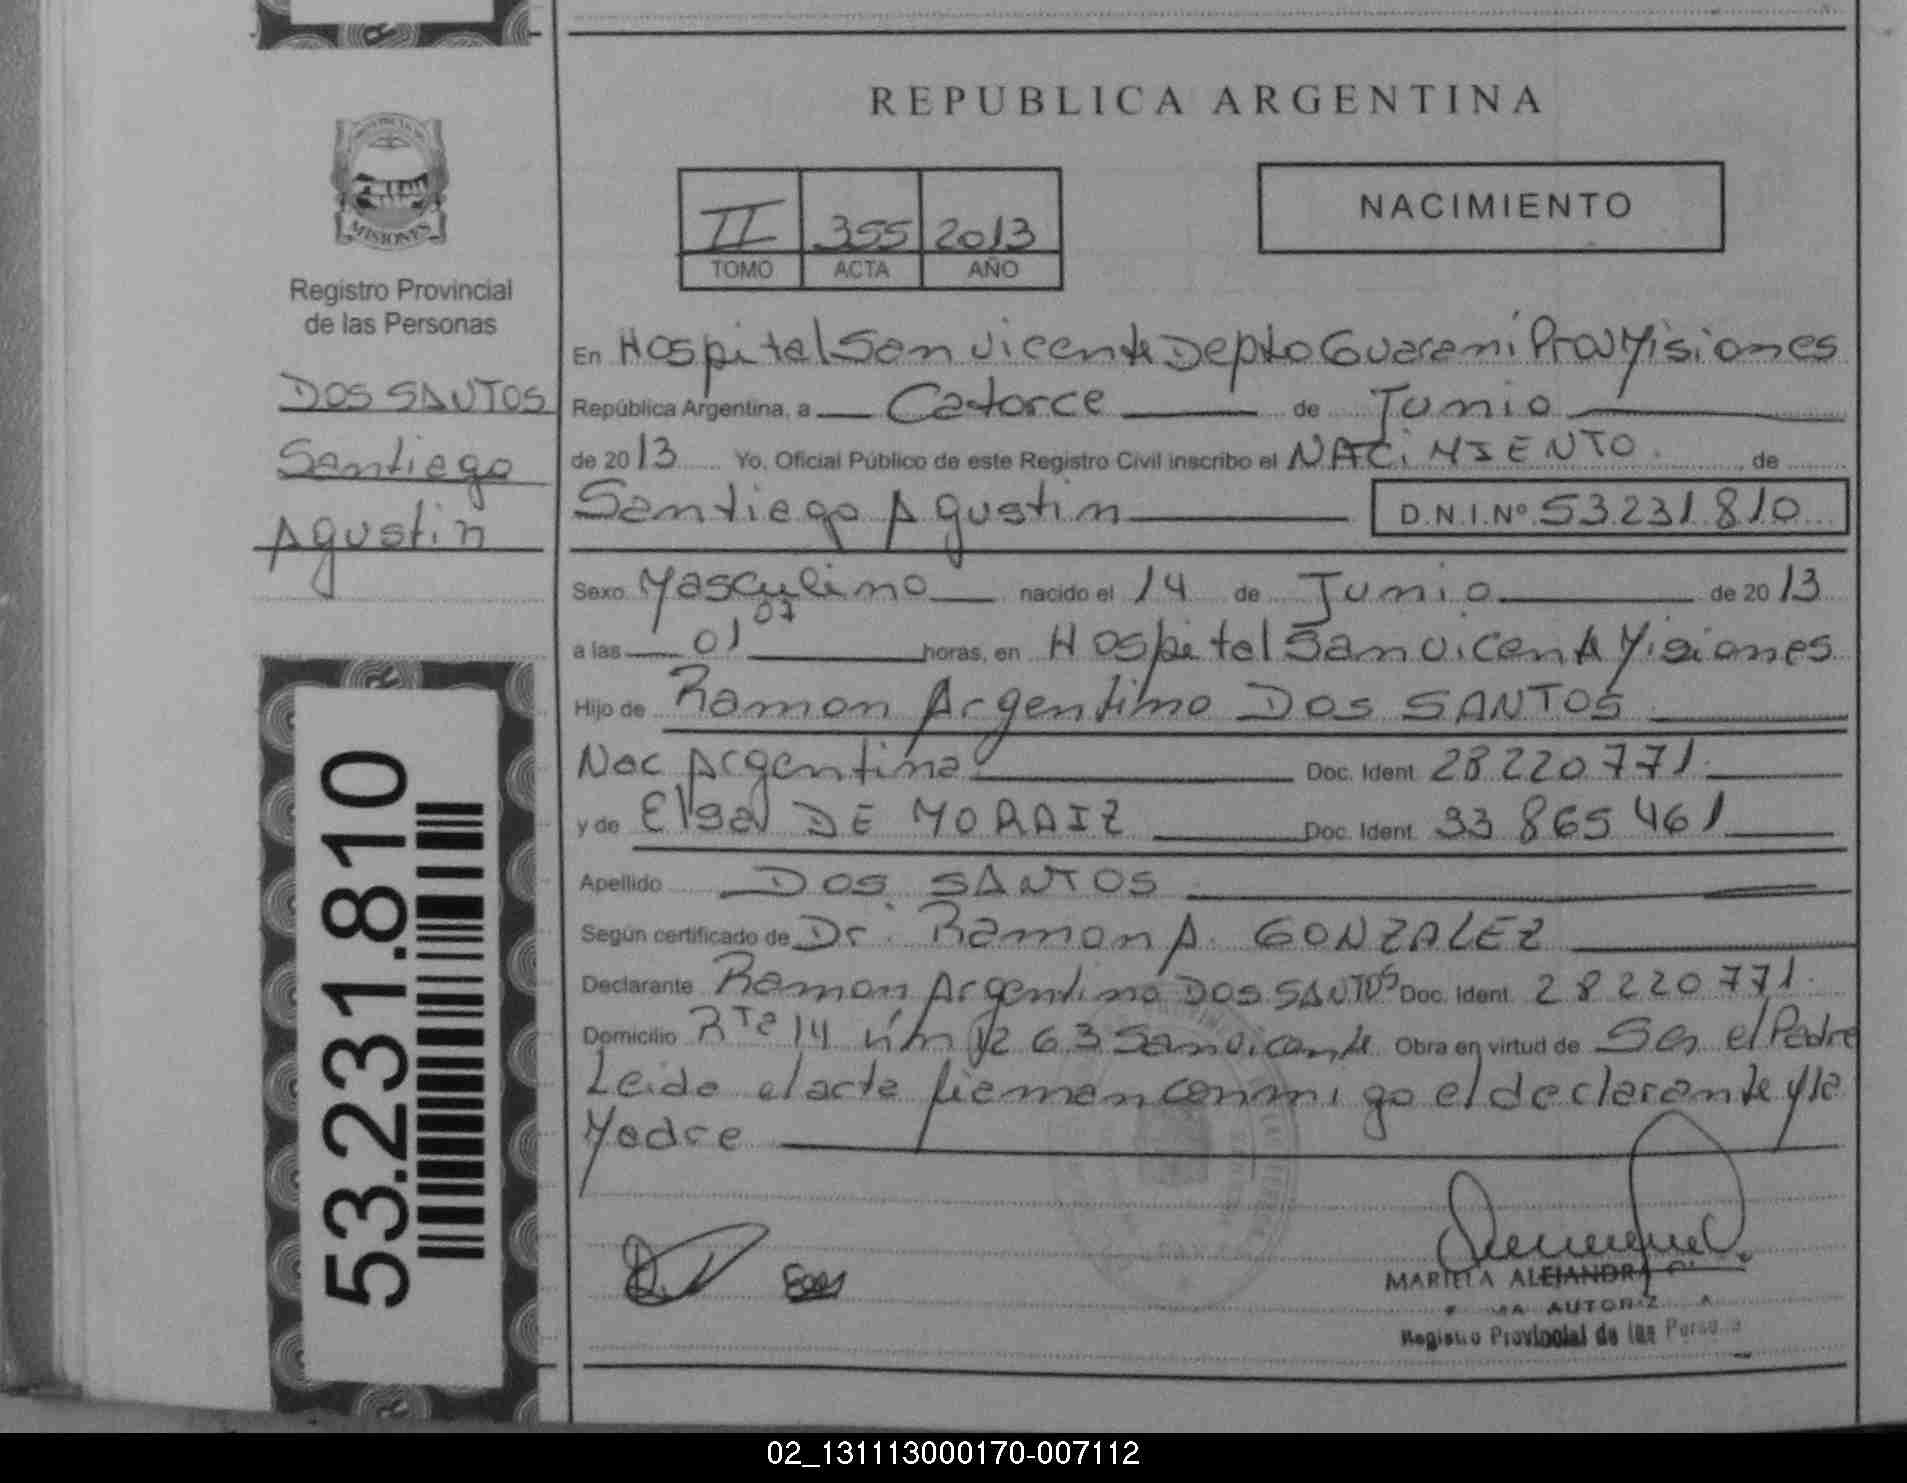 REPUBLICA ARGENTINA
MISIONES
Registro Provincial
de las Personas
DOS SANTOS
Santiago
Agustin
53.231.810
II 355 2013
TOMO ACTA AÑO
NACIMIENTO
En Hospital San Vicente Depto Guarani Prov Misiones
República Argentina, a Catorce de Junio
de 2013 Yo, Oficial Público de este Registro Civil inscribo el NACIMIENTO de
Santiago Agustin D.N.I.Nº 53.231.810
Sexo Masculino nacido el 14 de Junio de 2013
a las 01 07 horas, en Hospital San Vicente Misiones
Hijo de Ramon Argentino DOS SANTOS
Nac Argentina Doc. Ident. 28.220.771
y de Elsa DE MORAIZ Doc. Ident. 33 865 461
Apellido DOS SANTOS
Según certificado de Dr. Ramon A. GONZALEZ
Declarante Ramon Argentino DOS SANTOS Doc. Ident. 28 220 771
Domicilio Rta 14 km 1263 San Vicente Obra en virtud de Ser el Padre
Leida el acta firman conmigo el declarante y la
Madre
MARIELA ALEJANDRA
AUTORIZ
Registro Provincial de las Persona
02_131113000170-007112